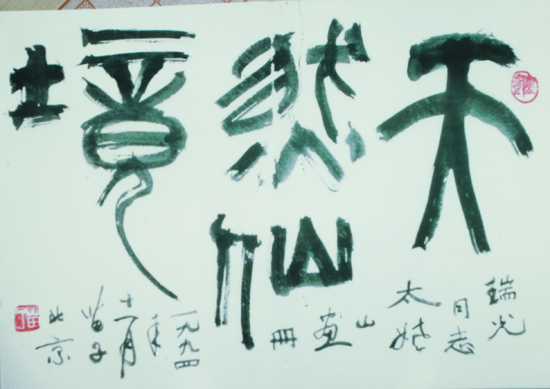 天然仙境
瑞光
同志
太姥
山
画
册
一九九四
年
十一月
苗子
北京